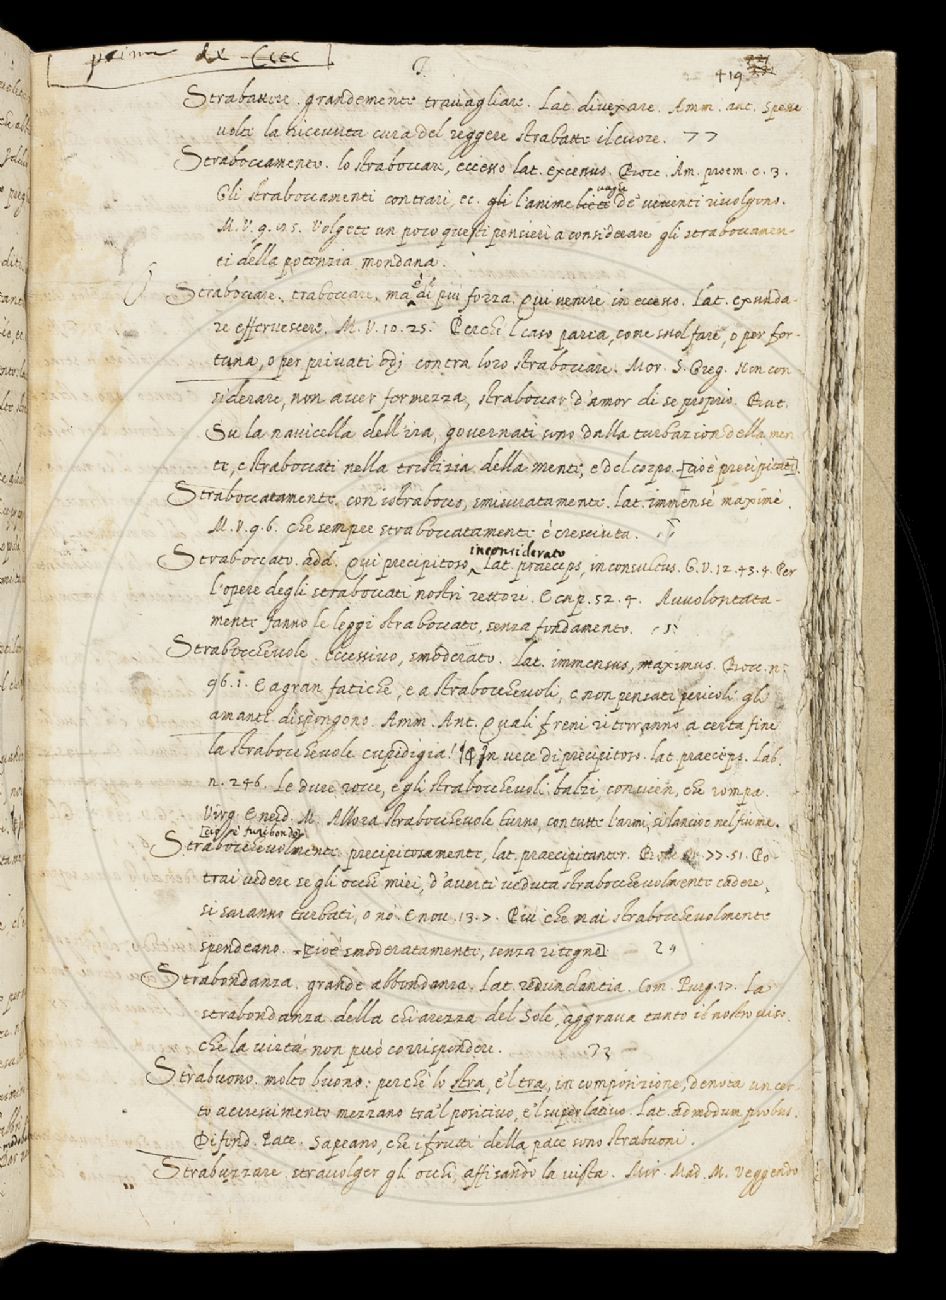 prima
S. 419
Strabattere. grandemente travagliare. Lat. divexare. Amm. ant. Spesse
volte la ricevuta cura del reggere strabatte il cuore. 77
Straboccamento. lo straboccare, eccesso lat. excessus. Bocc. Am. proem. c. 3.
Gli straboccamenti contrari, ec. gli l'anime liete vaghe de' viventi rivolgono.
M. V. 9. 105. Volgete un poco questi pensieri a considerare gli straboccamen-
ti della potenzia mondana.
Straboccare. traboccare, ma è di più forza. Qui venire in eccesso. Lat. exunda-
re effervescere. M. V. 10. 25. Perchè l caso paria, come suol fare, o per for-
tuna, o per privati odj contra loro straboccare. Mor. S. Greg. Non con
siderare, non aver fermezza, straboccar d'amor di se proprio. But.
Su la navicella dell'ira, governati sono dalla turbazion della men
te, e straboccati nella tristizia della mente, e del corpo. [cioè precipitati].
Straboccatamente. con istrabocco, smisuratamente. lat. immense maxime.
M. V. 9. 6. Che sempre straboccatamente è cresciuta.
Straboccato. add. Qui precipitoso, inconsiderato Lat. praeceps, inconsultus. G. V. 12. 43. 4. Per
l'opere degli straboccati nostri rettori. E cap. 52. 4. Avvolontata-
mente fanno le leggi straboccate, senza fondamento.
Strabocchevole. eccessivo, smoderato. Lat. immensus, maximus. Bocc. n.
96. 1. E a gran fatiche, e a strabocchevoli, e non pensati pericoli gli
amanti dispongono. Amm. Ant. Quali freni riterranno a certa fine
la strabocchevole cupidigia! In vece di precipitoso. lat. praeceps. Lab.
n. 246. Le dure rocce, e gli strabocchevoli balzi, convien, che rompa.
Virg. Eneid. M. Allora strabocchevole turno, con tutte l'armi, si lanciò nel fiume.
[cioè furibondo]
Strabocchevolmente. precipitosamente, lat. praecipitanter. Bocc. n. 77. 51. Po-
trai vedere se gli occhi miei, d'averti veduta strabocchevolmente cadere,
si saranno turbati, o nò. E nov. 13. 7. Più che mai strabocchevolmente
spendeano. [cioè smoderatamente, senza ritegno] — 29
Strabondanza. grande abbondanza. Lat. redundancia. Com. Purg. 17. La
strabondanza della chiarezza del Sole, aggrava tanto il nostro viso.
che la virtù non può corrispondere.
Strabuono. molto buono: perchè lo stra, e 'l tra, in composizione, denota un cer-
to accrescimento mezzano tra 'l positivo, e 'l superlativo. Lat. admodum probus.
Difend. Pace. Sapeano, che i frutti della pace sono strabuoni.
Strabuzzare. stravolger gli occhi, affisando la vista. Mir. Mad. M. Veggendo